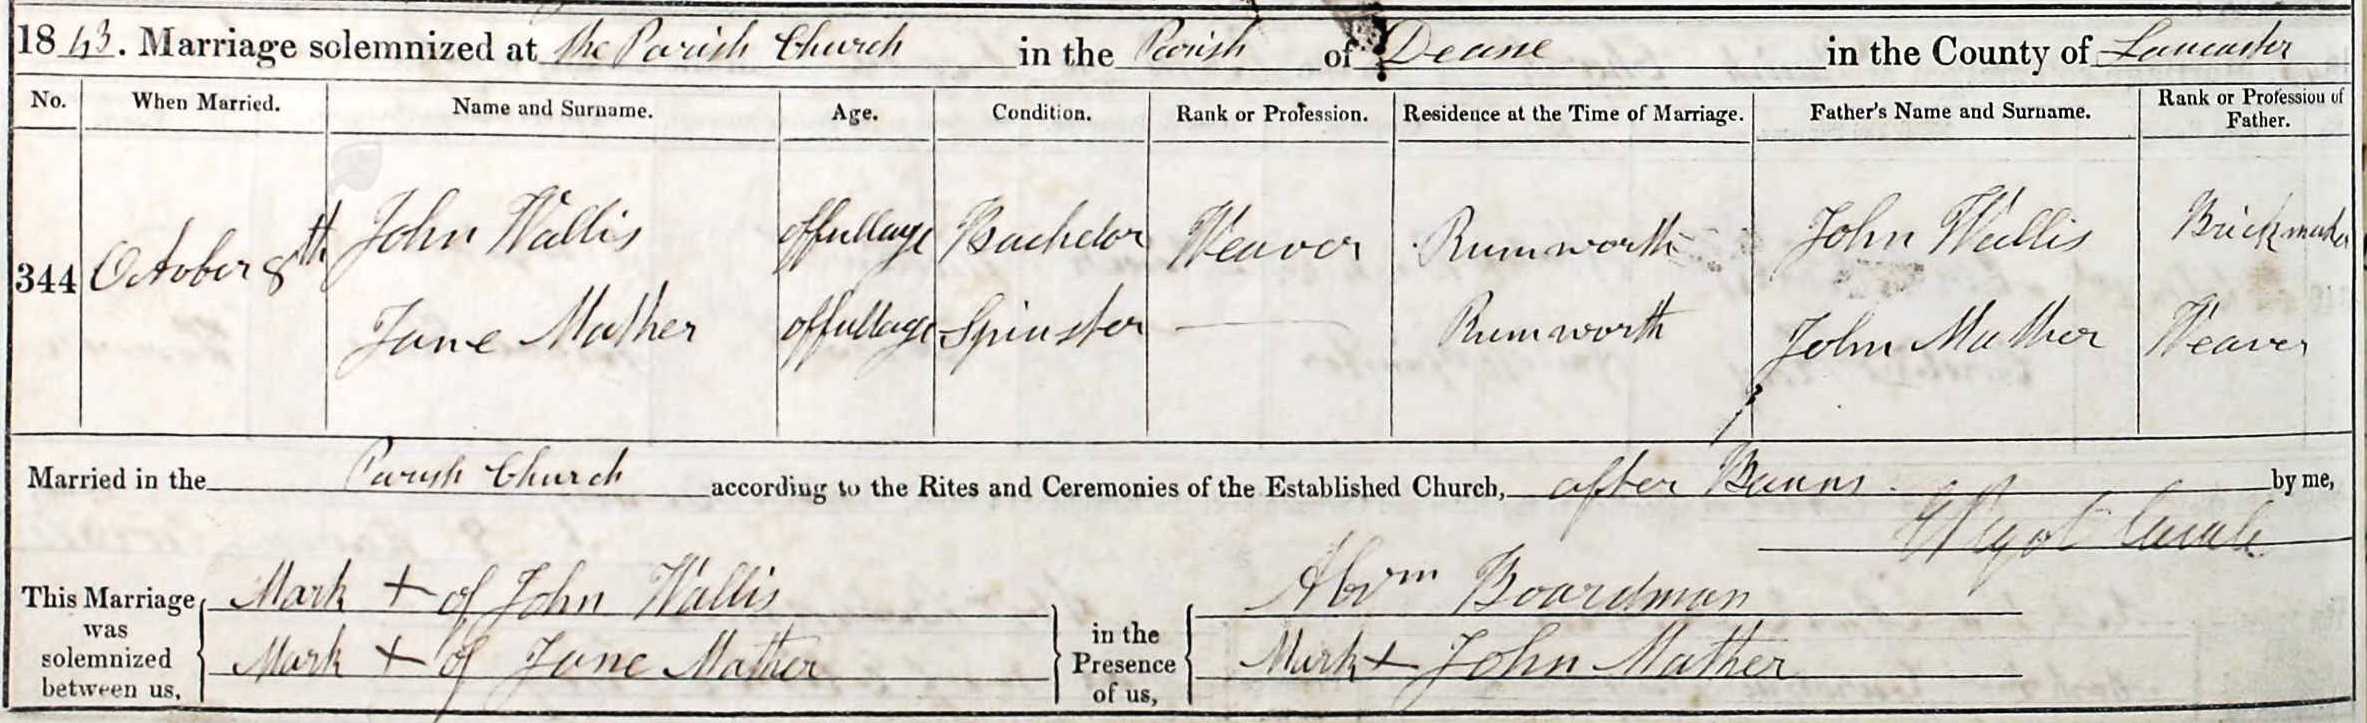 1843. Marriage solemnized at the Parish Church in the Parish of Deane in the County of Lancaster
No. When Married. Name and Surname. Age. Condition. Rank or Profession. Residence at the Time of Marriage. Father's Name and Surname. Rank or Profession of Father.
344 October 8th John Wallis of full age Bachelor Weaver Rumworth John Wallis Brickmaker
Jane Mather of full age Spinster — Rumworth John Mather Weaver
Married in the Parish Church according to the Rites and Ceremonies of the Established Church, after Banns. by me,
Curate
This Marriage was solemnized between us, Mark + of John Wallis in the Presence of us, Abrm Boardman
Mark + of Jane Mather Mark + John Mather